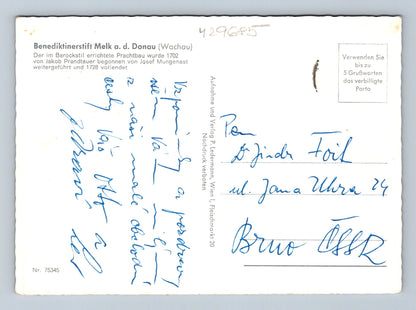 429685
Benediktinerstift Melk a. d. Donau (Wachau)
Der im Barockstil errichtete Prachtbau wurde 1702
von Jakob Prandtauer begonnen von Josef Mungenast
weitergeführt und 1728 vollendet
Verwenden Sie
bis zu
5 Grußworten
das verbilligte
Porto
Vzpomínky a pozdravy
Vám
z naší malé
cesty Váš Otto a
Aufnahme und Verlag P. Ledermann, Wien I, Fleischmarkt 20
Nachdruck verboten
Pan
Dr Jindr Foit
ul. Jana Uhra 24
Brno ČSSR
Nr. 75345